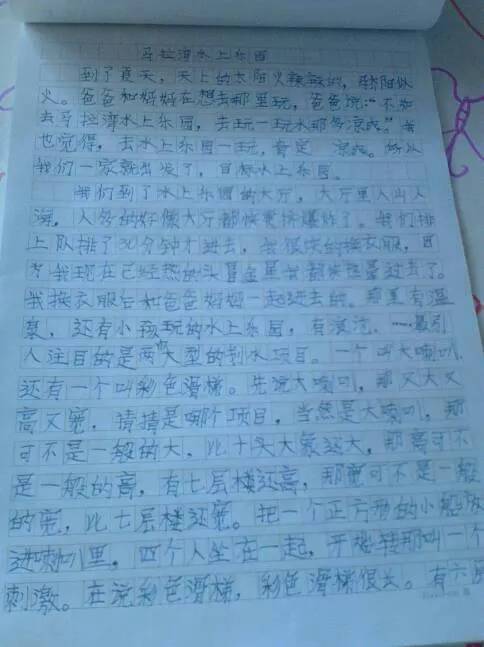 马拉湾水上乐园
到了夏天，天上的太阳火辣辣的，骄阳似
火。爸爸和妈妈在想去那里玩，爸爸说：“不如
去马拉湾水上乐园，去玩一玩水那多凉爽。”我
也觉得，去水上乐园一玩，肯定 凉爽。所以
我们一家就出发了，目标水上乐园。
我们到了水上乐园的大厅，大厅里人山人
海，人多的好像大厅都快要挤爆炸了。我们排
上队排了30分钟才进去，我很快的换衣服，因
为我现在已经热的头冒金星我都快热晕过去了。
我换衣服后和爸爸妈妈一起进去的。那里有温
泉，还有小孩玩的水上乐园，有漂流。……最引
人注目的是两大型的刺水项目。一个叫大喇叭，
还有一个叫彩色滑梯。先说大喇叭，那又大又
高又宽，请猜是哪个项目，当然是大喇叭，那
可不是一般的大，比十头大象还大，那高可不
是一般的高，有七层楼还高，那宽可不是一般
的宽，比七层楼还宽。把一个正方形的小船放
进喇叭里，四个人坐在一起，开始转那叫一个
刺激。在说彩色滑梯，彩色滑梯很长。有六